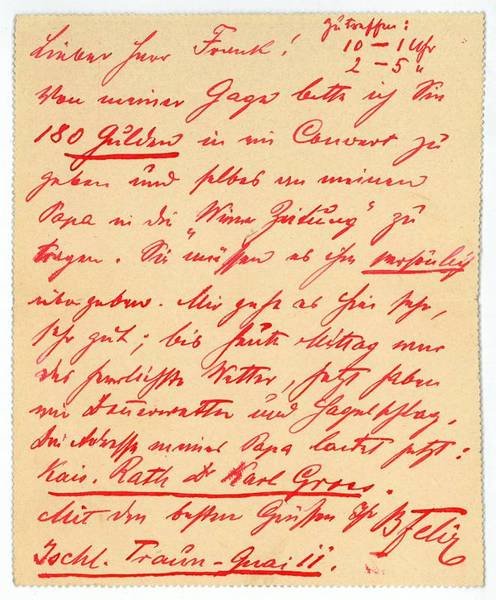 Zutreffen:
10 – 1 Uhr
2 – 5 "
Lieber Herr Frank!
Von meiner Gage bitte ich Sie
180 Gulden in ein Couvert zu
geben und selbes an meinen
Papa in die "Wiener Zeitung" zu
tragen. Sie müssen es ihm persönlich
übergeben. Mir geht es hier sehr,
sehr gut; bis heute Mittag war
das herrlichste Wetter, jetzt haben
wir Donnerwetter und Hagelschlag.
Die Adresse meines Papa lautet jetzt:
Kais. Rath Dr Karl Gross.
Mit den besten Grüßen Ihr B Felix
Ischl. Traun-Quai 11.